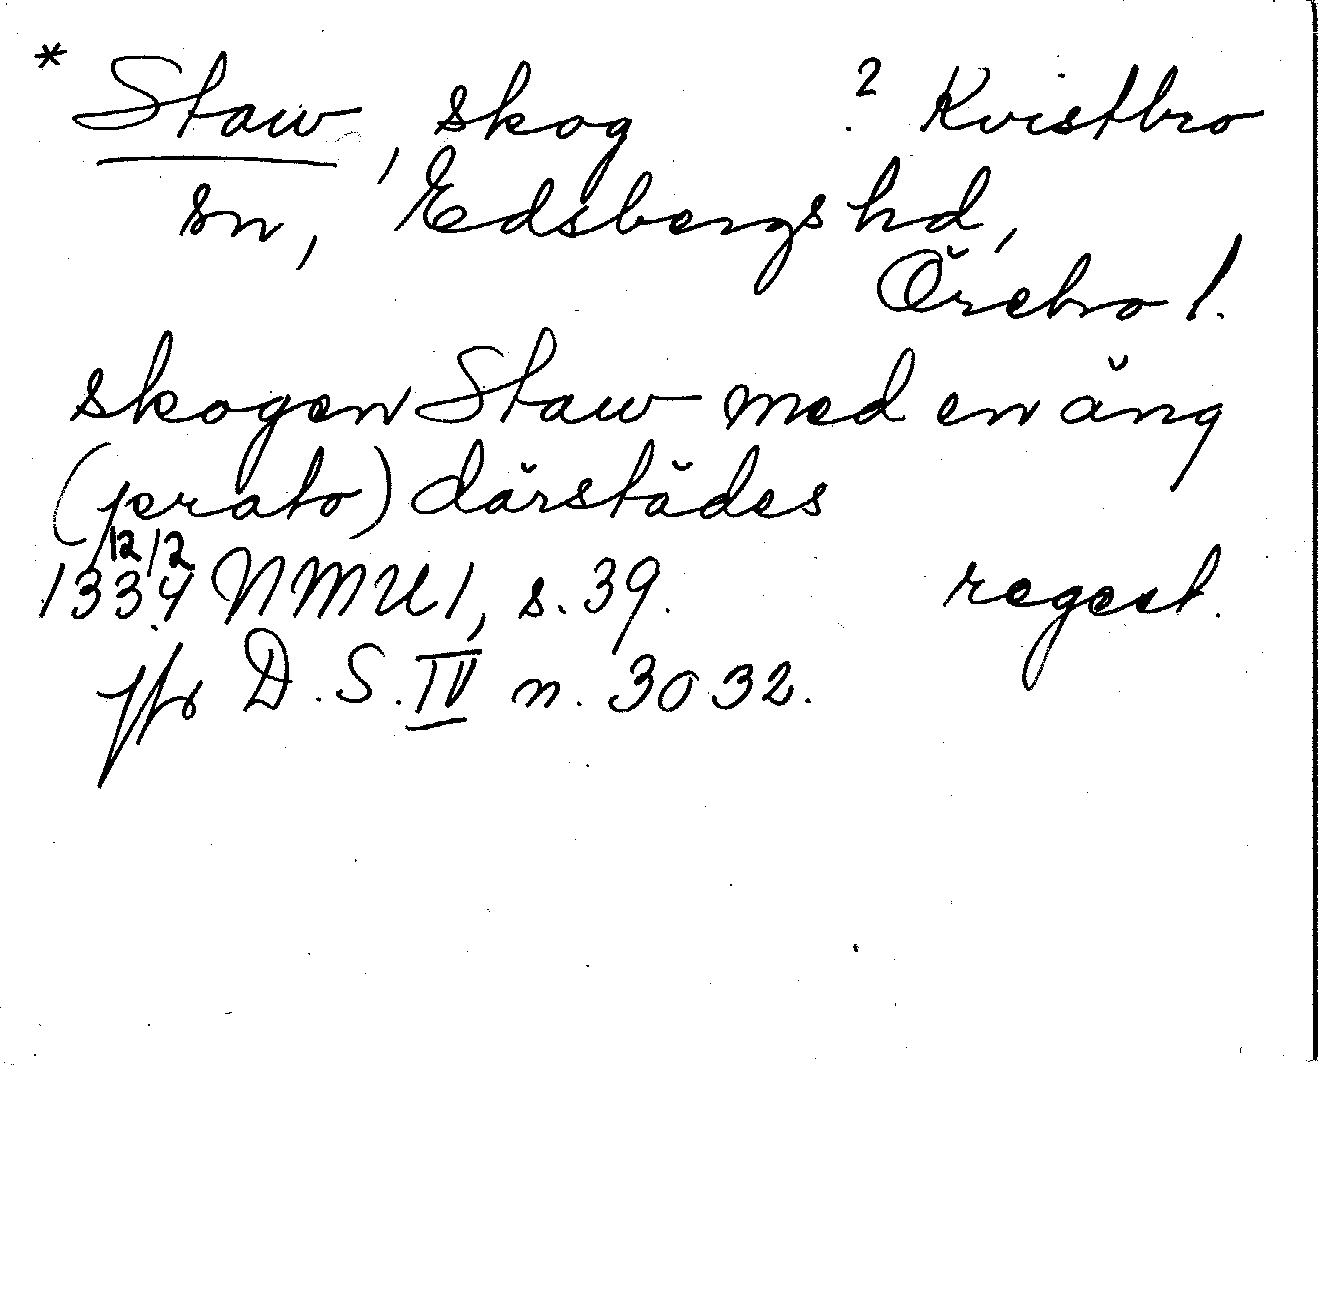 * Staw, skog ? Kvistbro
sn, Edsbergs hd,
Örebro l.
skogen Staw med en äng
(prato) därstädes
1334 12/2 NMU 1, s. 39. regest.
jfr D.S. IV n. 3032.